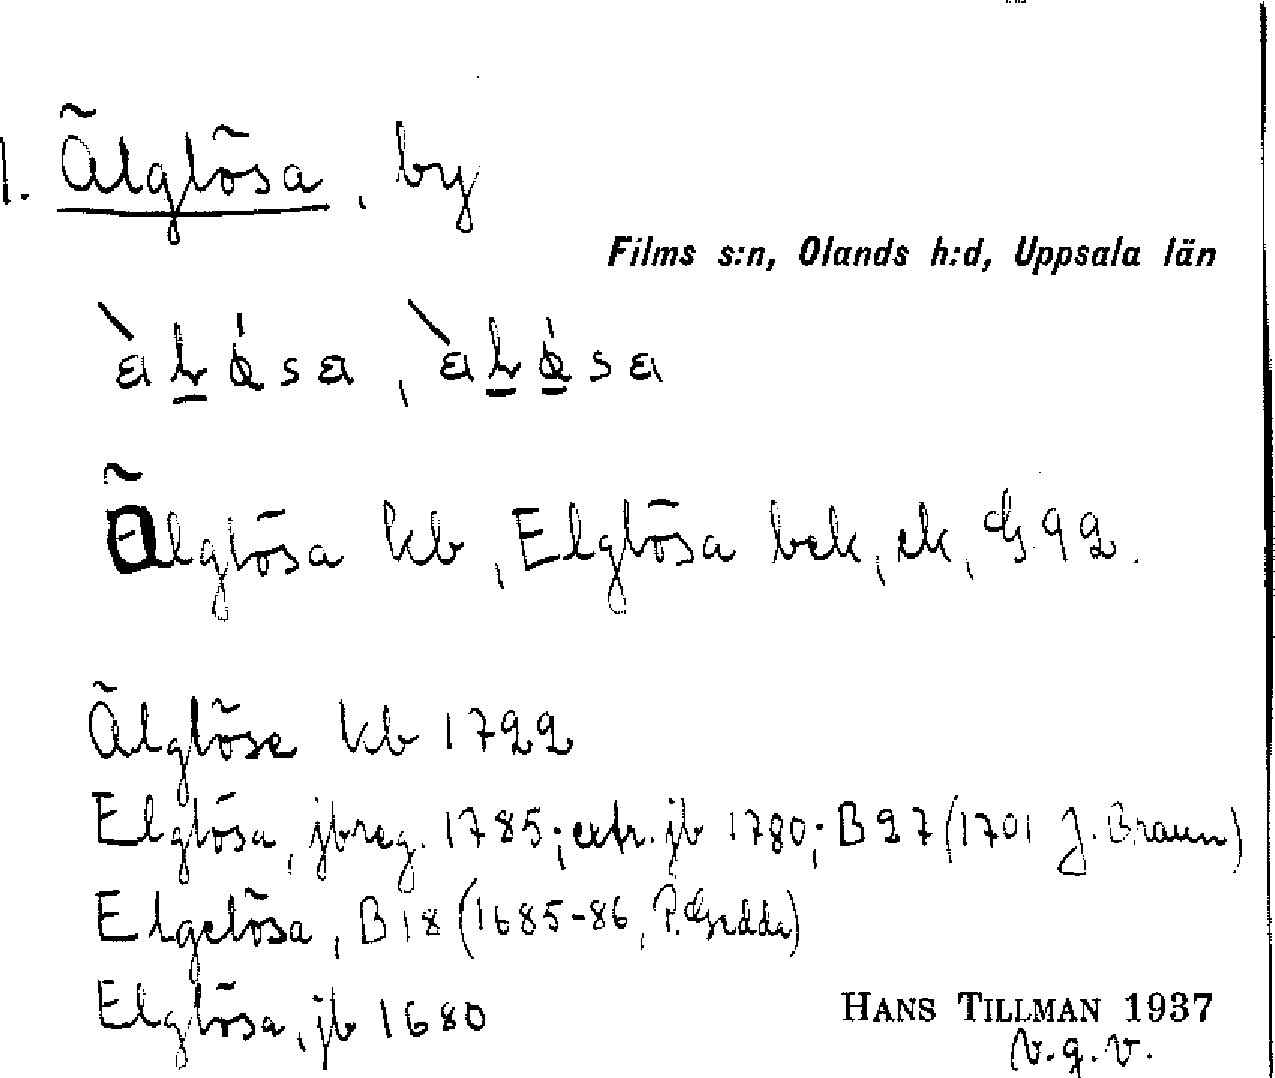 1. Älglösa, by
Films s:n, Olands h:d, Uppsala län
Älglösa kb, Elglösa bek, ek, G 92.
Älglöse kb 1722
Elglösa, jbreg. 1785; extr. jb 1780; B 27 (1701 J. Braun)
Elgelösa, B 18 (1685-86, P. Gedda)
Elglösa, jb 1680
HANS TILLMAN 1937
v.g.v.